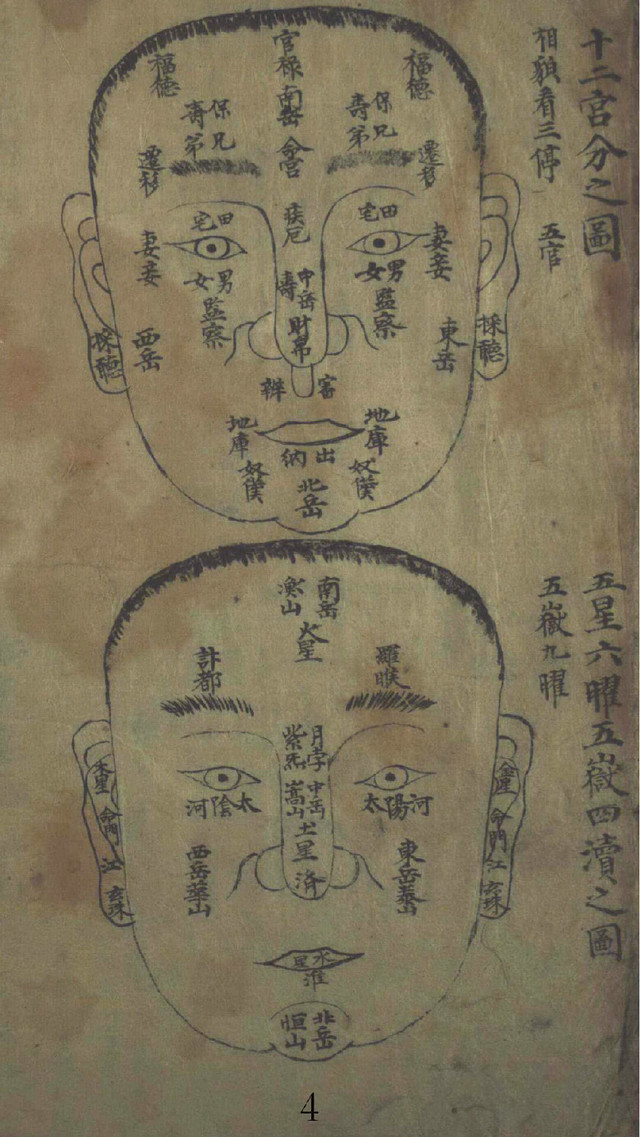 十二宮分之圖
相貌看三停 五官
官祿
南岳
命宮
福德
福德
保壽
兄弟
保壽
兄弟
遷移
遷移
田宅
田宅
疾厄
妻妾
妻妾
男女
男女
中岳
壽
財帛
監察
監察
採聽
採聽
東岳
西岳
審辨
地庫
地庫
出納
奴僕
奴僕
北岳
五星六曜五嶽四瀆之圖
五嶽九曜
南岳
衡山
火星
羅睺
計都
月孛
紫炁
中岳
嵩山
土星
濟
太陽河
太陰河
金星 命門 江 玄珠
木星 命門 江 玄珠
東岳泰山
西岳華山
水星
淮
北岳
恒山
4